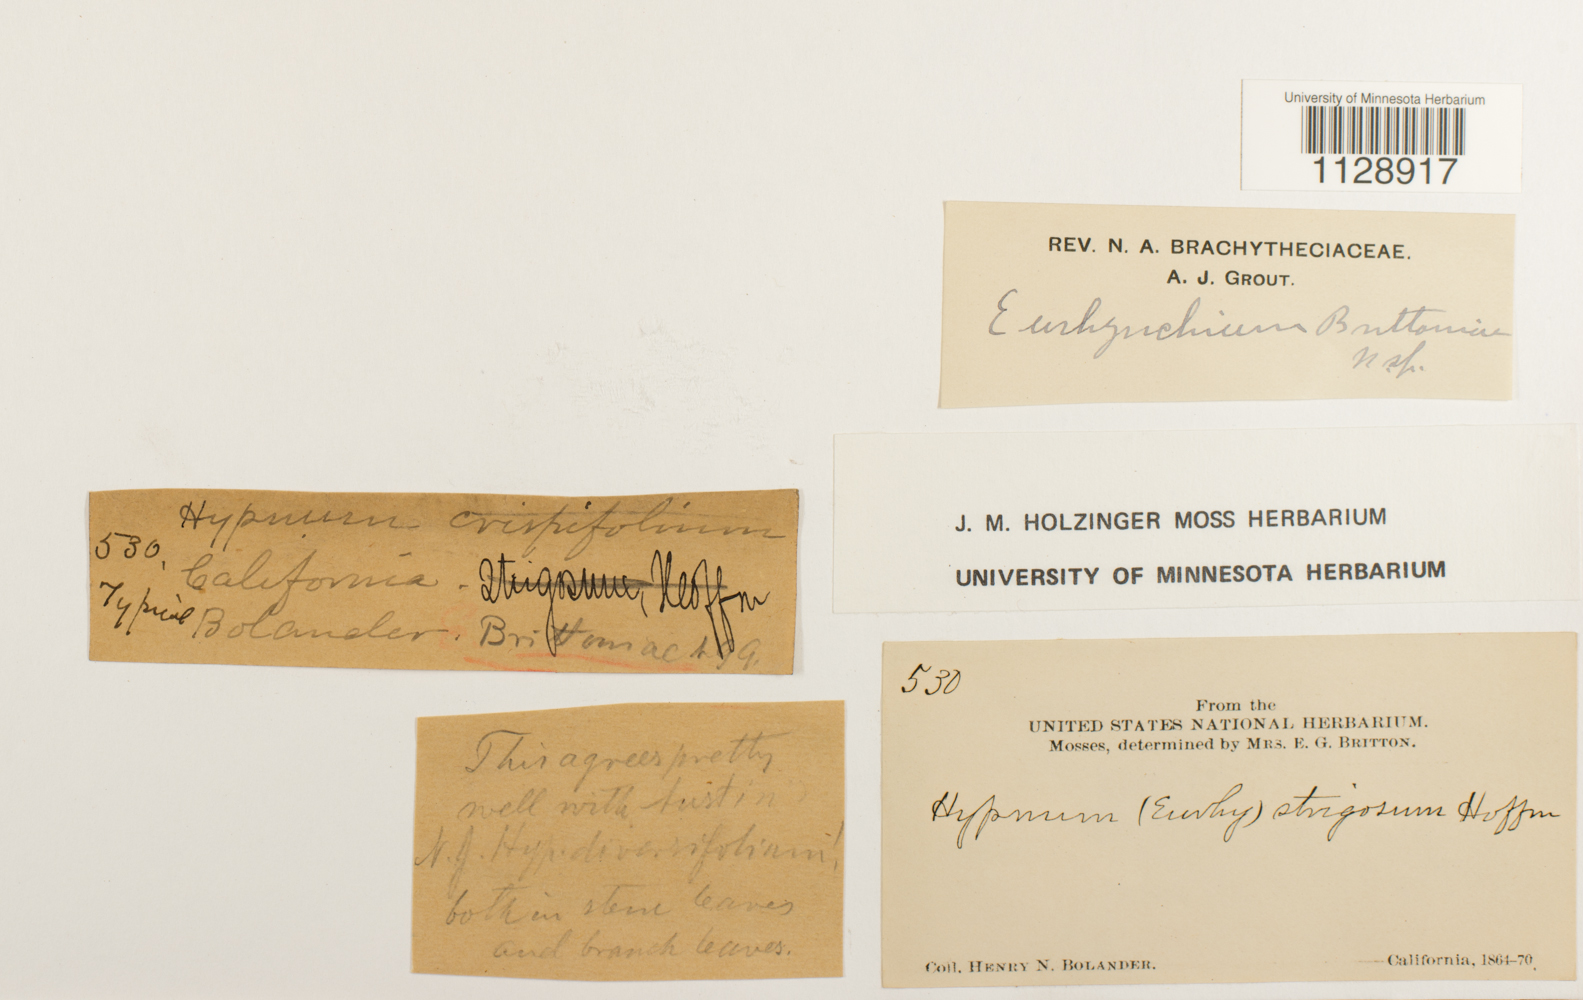 University of Minnesota Herbarium
1128917
REV. N. A. BRACHYTHECIACEAE.
A. J. GROUT.
Eurhynchium Brittoniae
n. sp.
J. M. HOLZINGER MOSS HERBARIUM
UNIVERSITY OF MINNESOTA HERBARIUM
Hypnum crispifolium
530,
California. Strigosum, Hoffm
Typical
Bolander. Brittoniae
This agrees pretty
well with Austin
N.J. Hyp. diversifolium!
both in stem leaves
and branch leaves.
530
From the
UNITED STATES NATIONAL HERBARIUM.
Mosses, determined by MRS. E. G. BRITTON.
Hypnum (Eurhy) strigosum Hoffm
Coll. HENRY N. BOLANDER.
California, 1864-70.